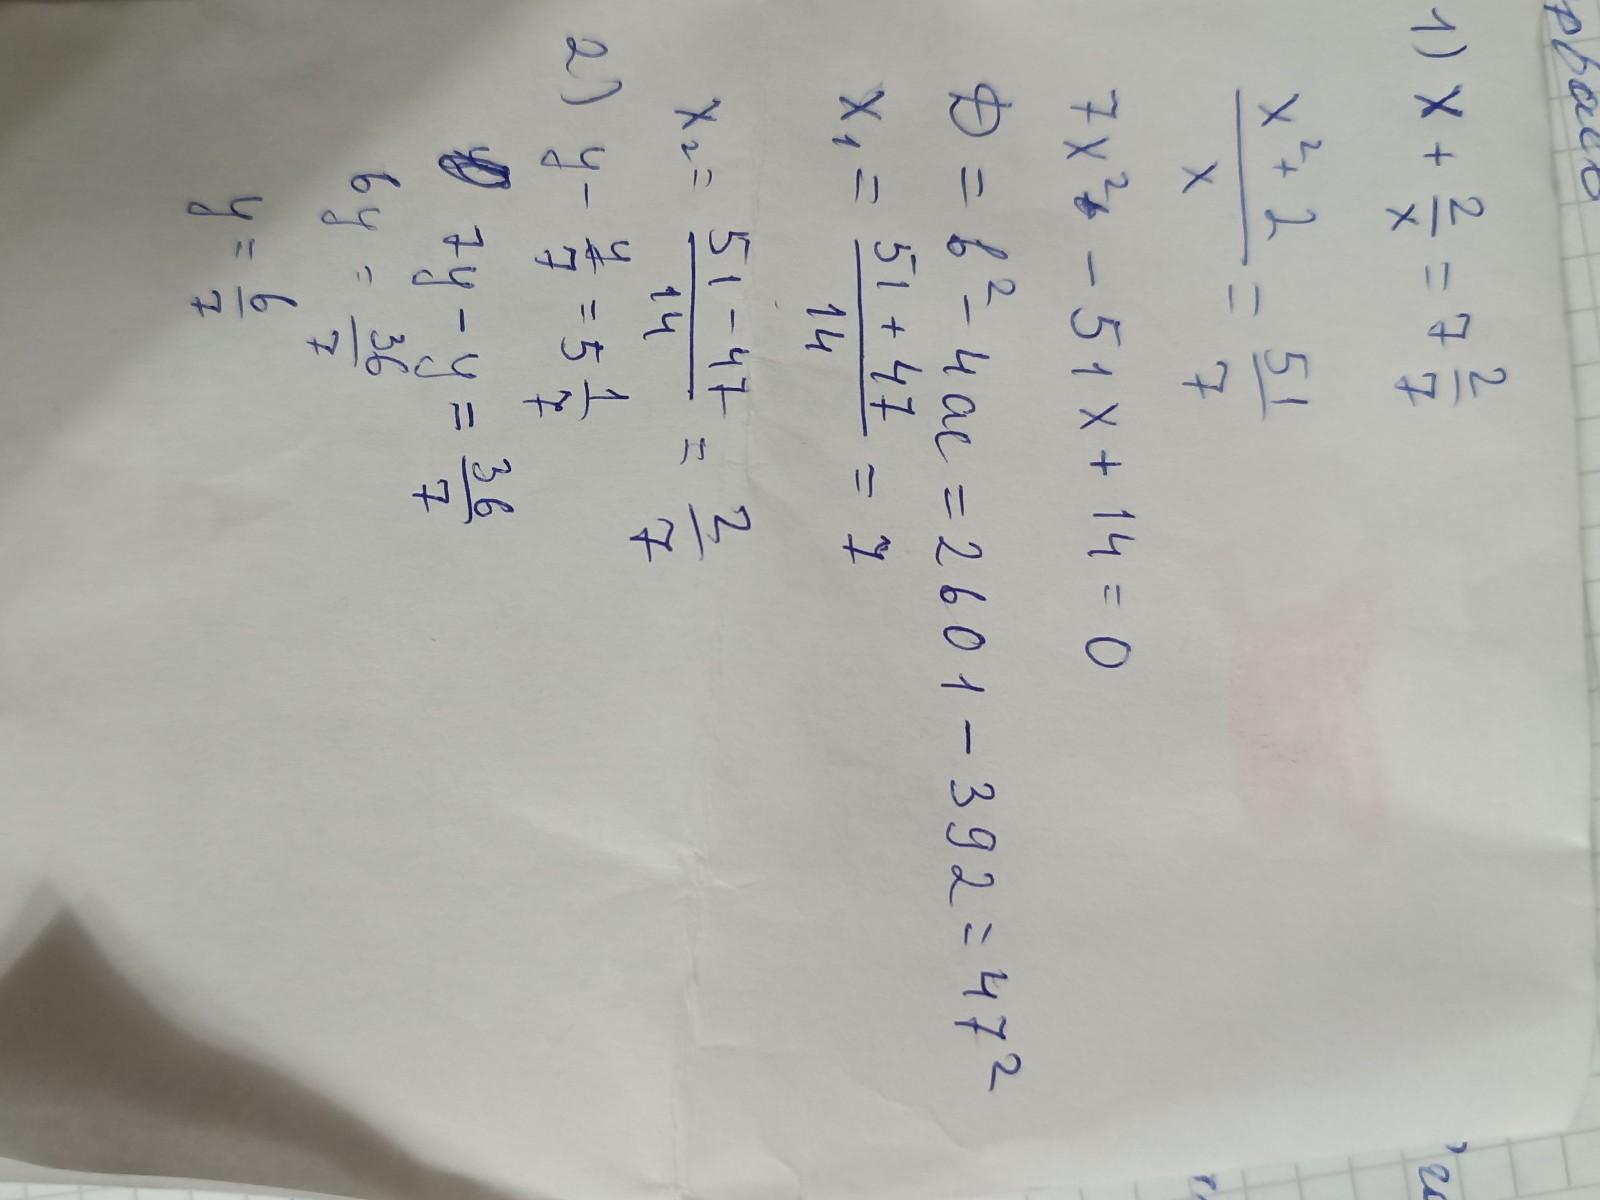 1) x + 2/x = 7 2/7
x² + 2 / x = 51/7
7x² - 51x + 14 = 0
D = b² - 4ac = 2601 - 392 = 47²
x₁ = 51 + 47 / 14 = 7
x₂ = 51 - 47 / 14 = 2/7
2) y - y/7 = 5 1/7
7y - y = 36/7
6y = 36/7
y = 6/7